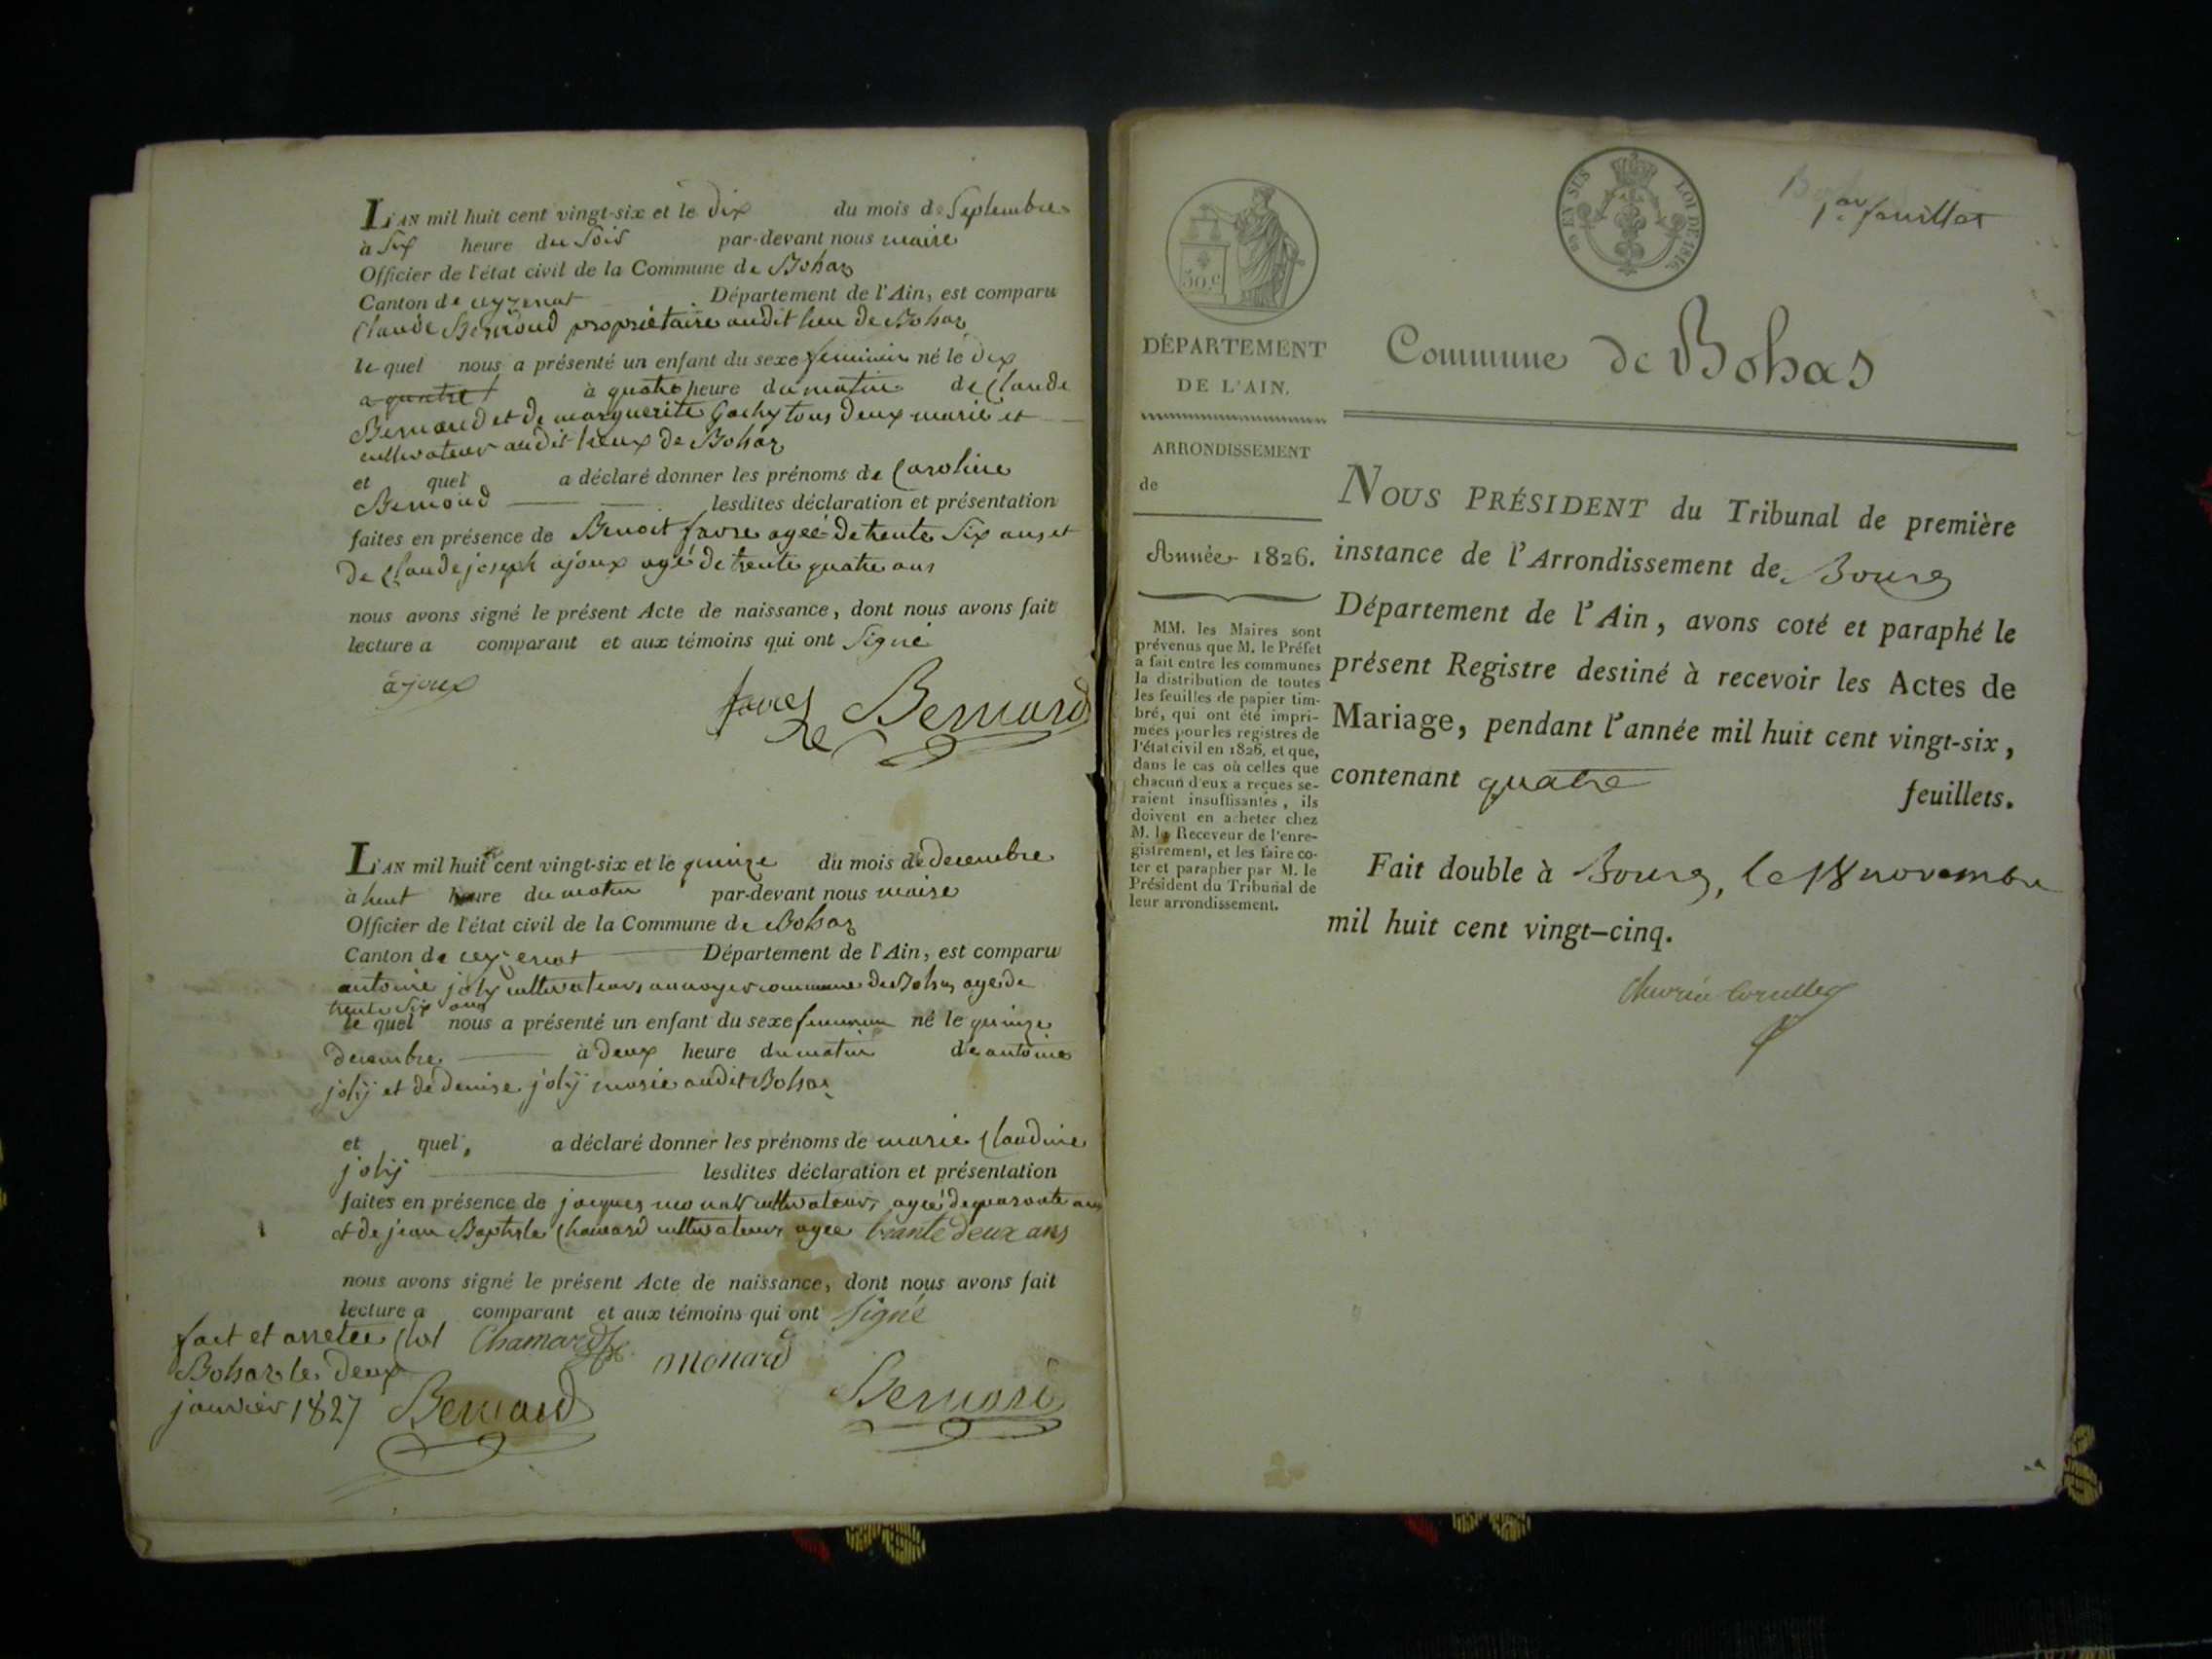 L'AN mil huit cent vingt-six et le dix du mois de Septembre
à Six heure du Soir par-devant nous maire
Officier de l'état civil de la Commune de Bohas
Canton de ceyzeriat Département de l'Ain, est comparu
Claude Bernard propriétaire audit lieu de Bohas
le quel nous a présenté un enfant du sexe feminin né le dix
a quatre à quatre heure du matin de Claude
Bernard et de marguerite Gachy tous deux marié et
cultivateur audit lieux de Bohas
et quel a déclaré donner les prénoms de Caroline
Bernard lesdites déclaration et présentation
faites en présence de Benoit favre ageé de trente Six ans et
de Claude joseph ajoux agé de trente quatre ans
nous avons signé le présent Acte de naissance, dont nous avons fait
lecture a comparant et aux témoins qui ont Signé
ajoux
favre Bernard
L'AN mil huit cent vingt-six et le quinze du mois de decembre
à huit heure du matin par-devant nous maire
Officier de l'état civil de la Commune de Bohas
Canton de ceyzeriat Département de l'Ain, est comparu
antoine joly cultivateur commune de Bohas agé de
trente Six ans
le quel nous a présenté un enfant du sexe feminin né le quinze
decembre à deux heure du matin de antoine
jolÿ et de denise jolÿ marié audit Bohas
et quel, a déclaré donner les prénoms de marie Claudine
jolÿ lesdites déclaration et présentation
faites en présence de jacques cultivateur, ageé de quarante ans
et de jean Baptiste Chamard cultivateur agee trante deux ans
nous avons signé le présent Acte de naissance, dont nous avons fait
lecture a comparant et aux témoins qui ont Signé
fait et arretee clot Chamard monard
Bohas le deux
janvier 1827 Bernard Bernard
50 c
en sus
LOI DE 1816.
1er feuillet
DÉPARTEMENT
DE L'AIN.
ARRONDISSEMENT
de
Année 1826.
MM. les Maires sont
prévenus que M. le Préfet
a fait entre les communes
la distribution de toutes
les feuilles de papier tim-
bré, qui ont été impri-
mées pour les registres de
l'état civil en 1826, et que,
dans le cas où celles que
chacun d'eux a reçues se-
raient insuffisantes, ils
doivent en acheter chez
M. le Receveur de l'enre-
gistrement, et les faire co-
ter et parapher par M. le
Président du Tribunal de
leur arrondissement.
Commune de Bohas
NOUS PRÉSIDENT du Tribunal de première
instance de l'Arrondissement de Bourg
Département de l'Ain, avons coté et paraphé le
présent Registre destiné à recevoir les Actes de
Mariage, pendant l'année mil huit cent vingt-six,
contenant quatre feuillets.
Fait double à Bourg, le 18 novembre
mil huit cent vingt-cinq.